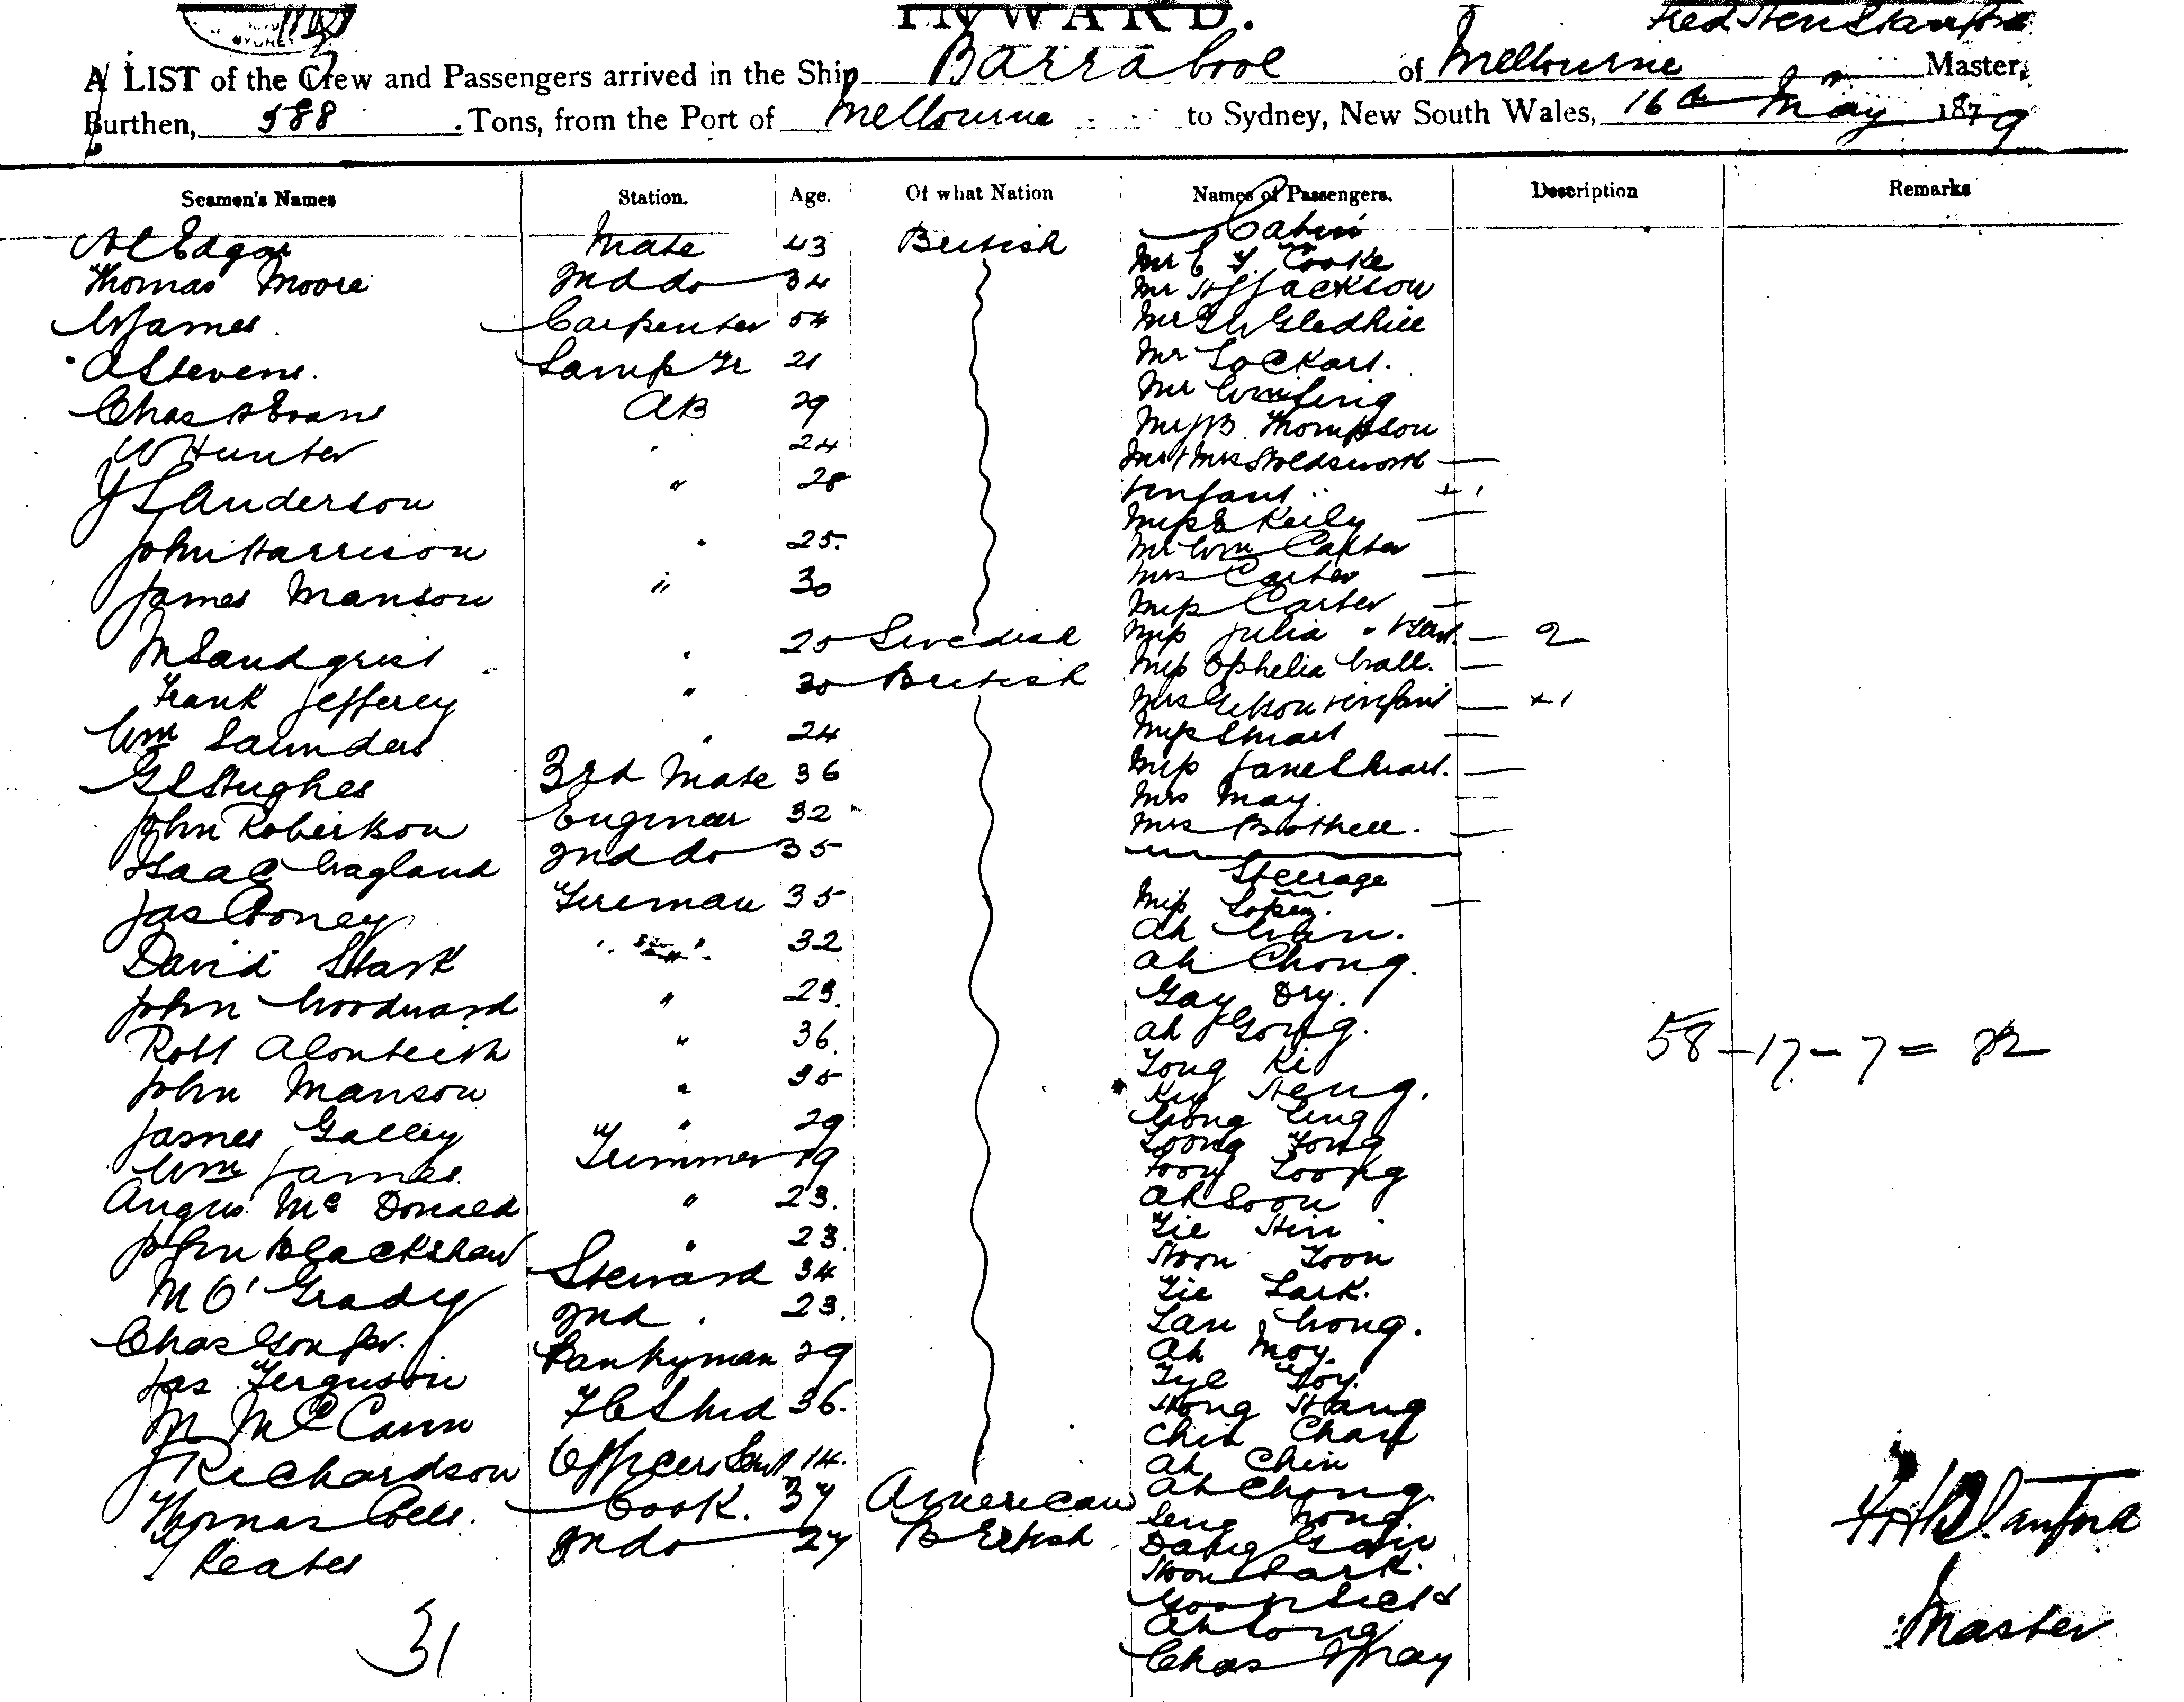 INWARD.
SYDNEY
Fred Hen Stanford
A LIST of the Crew and Passengers arrived in the Ship Barrabool of Melbourne Master,
Burthen, 588 Tons, from the Port of Melbourne to Sydney, New South Wales, 16th May 1879
Seamen's Names Station. Age. Of what Nation Names of Passengers. Description Remarks
Edgar Mate 43 British
Thomas Moore 2nd do 34
W James Carpenter 54
A Stevens. Lamp Tr 21
Chas H Evans AB 29
W Hunter " 24
J S Anderson " 28
John Harrison " 25
James Manson " 30
M Sandgrist " 25 Swedish
Frank Jefferey " 30 British
Wm Saunders " 24
G S Hughes 3rd Mate 36
John Robertson Engineer 32
Isaac Wagland 2nd do 35
Jas Cooney Fireman 35
David Stark " 32
John Woodward " 23.
Robt Alonteith " 36.
John Manson " 35
James Galley " 29
Wm James. Trimmer 19
Angus Mc Donald " 23.
John Blackshaw " 23.
M O'Grady Steward 34
Chas 2nd . 23.
Jas Ferguson Pantryman 29
M McCann F C Stwd 36.
J Richardson Officers Sert 14.
Thomas Cole. Cook. 37 American
J Keates 2nd do 27 British
31
Cabin
Mr E J. Cooke
Mr H J Jackson
Mr G W Gledhill
Mr Lockart.
Mr
Mr J B. Thompson
Mr & Mrs Holdsworth —
& infant + 1
Miss E Keily —
Mr Wm Carter
Mrs Carter —
Miss Carter —
Miss Julia " & Serv. — 2
Miss Ophelia Wall. —
Mrs Gibson & infant — + 1
Miss Stuart —
Miss Jane Stuart. —
Mrs May. —
Mrs Bothell. —
Steerage
Miss Lopez. —
Ah Wan.
Ah Chong.
Gay Dry.
Ah Gong.
Tong Ki
Kin Heng.
Wong Ling
Loong Fong
Foon Loong
Ah Soon
Tie Hin
Hoon Toon
Tie Lark.
Lan Wong.
Ah Moy.
Tye Foy.
Hong Hang
Chin Chan
Ah Chin
Ah Chong
Leng Wong.
Dang
Hoon Lark.
Ah Long
Chas Gray
58 — 17 — 7 = 82
F H Stanford
Master